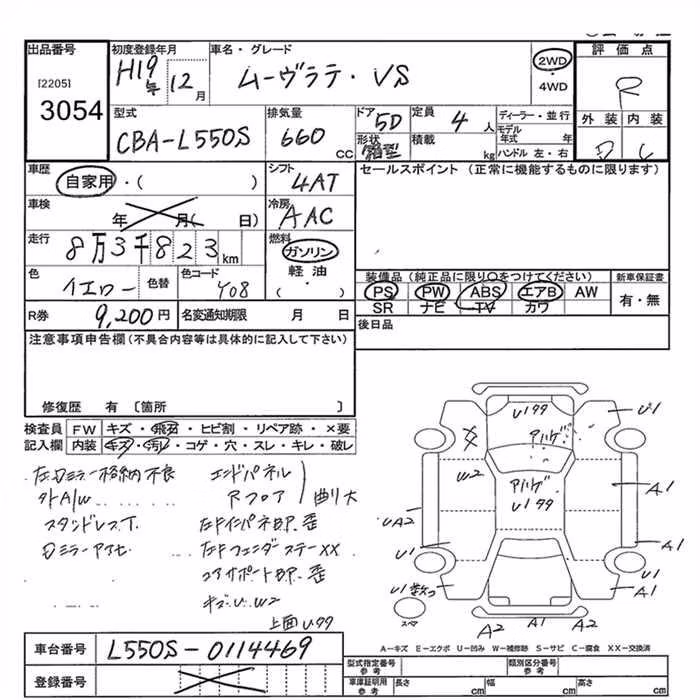 出品番号 初度登録年月 車名・グレード 評価点
[2205] H19年 12月 ムーヴラテ・VS 2WD R
3054 4WD
外装 内装
型式 排気量 ドア 定員 ディーラー・並行
CBA-L550S 660 CC 5D 4人 モデル年式 年
形状 箱型 積載 kg ハンドル 左・右 D
車歴 シフト セールスポイント (正常に機能するものに限ります)
自家用・( ) 4AT
車検 冷房
年 月( 日) AAC
走行 燃料
8万3千823km ガソリン
軽油
色 色替 色コード ( ・ )
イエロー Y08
装備品 (純正品に限り○をつけてください) 新車保証書
PS PW ABS エアB AW 有・無
SR ナビ TV カワ
R券 9,200円 名変通知期限 月 日 後日品
注意事項申告欄(不具合内容等は具体的に記入して下さい)
修復歴 有 〔箇所 〕
検査員 FW キズ・飛石・ヒビ割・リペア跡・×要
記入欄 内装 キズ・汚レ・コゲ・穴・スレ・キレ・破レ
左Dミラー格納不良 エンドパネル
社外A/W Rフロア 曲り大
スタンドレスT. 左FインパネB.P.歪
Dミラーアカセ 左Fフェンダーステー××
コアサポートB.P.歪
キズ.U.W2
上面U99
U199
アハゲ
U1
W2
アハゲ
U199
A1
UA2
U1
A1
U1
U1数コ
A1
スペア
A2 A1 A2
A-キズ E-エクボ U-凹み W-補修跡 S-サビ C-腐食 XX-交換済
車台番号 L550S-0114469
登録番号
型式指定番号 参考 類別区分番号 参考
車庫証明用 参考 長さ cm 幅 cm 高さ cm